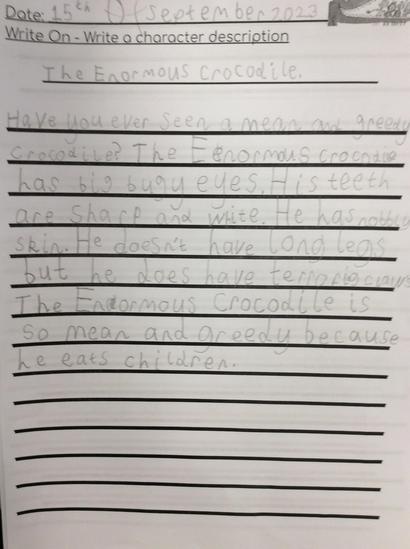 Date: 15th Of September 2023
Write On - Write a character description
The Enormous Crocodile.
Have you ever seen a mean and greedy
crocodile? The Eenormous crocodile
has big bugy eyes. His teeth
are sharp and white. He has nobbly
skin. He doesn't have long legs
but he does have claws
The Enormous Crocodile is
so mean and greedy because
he eats children.